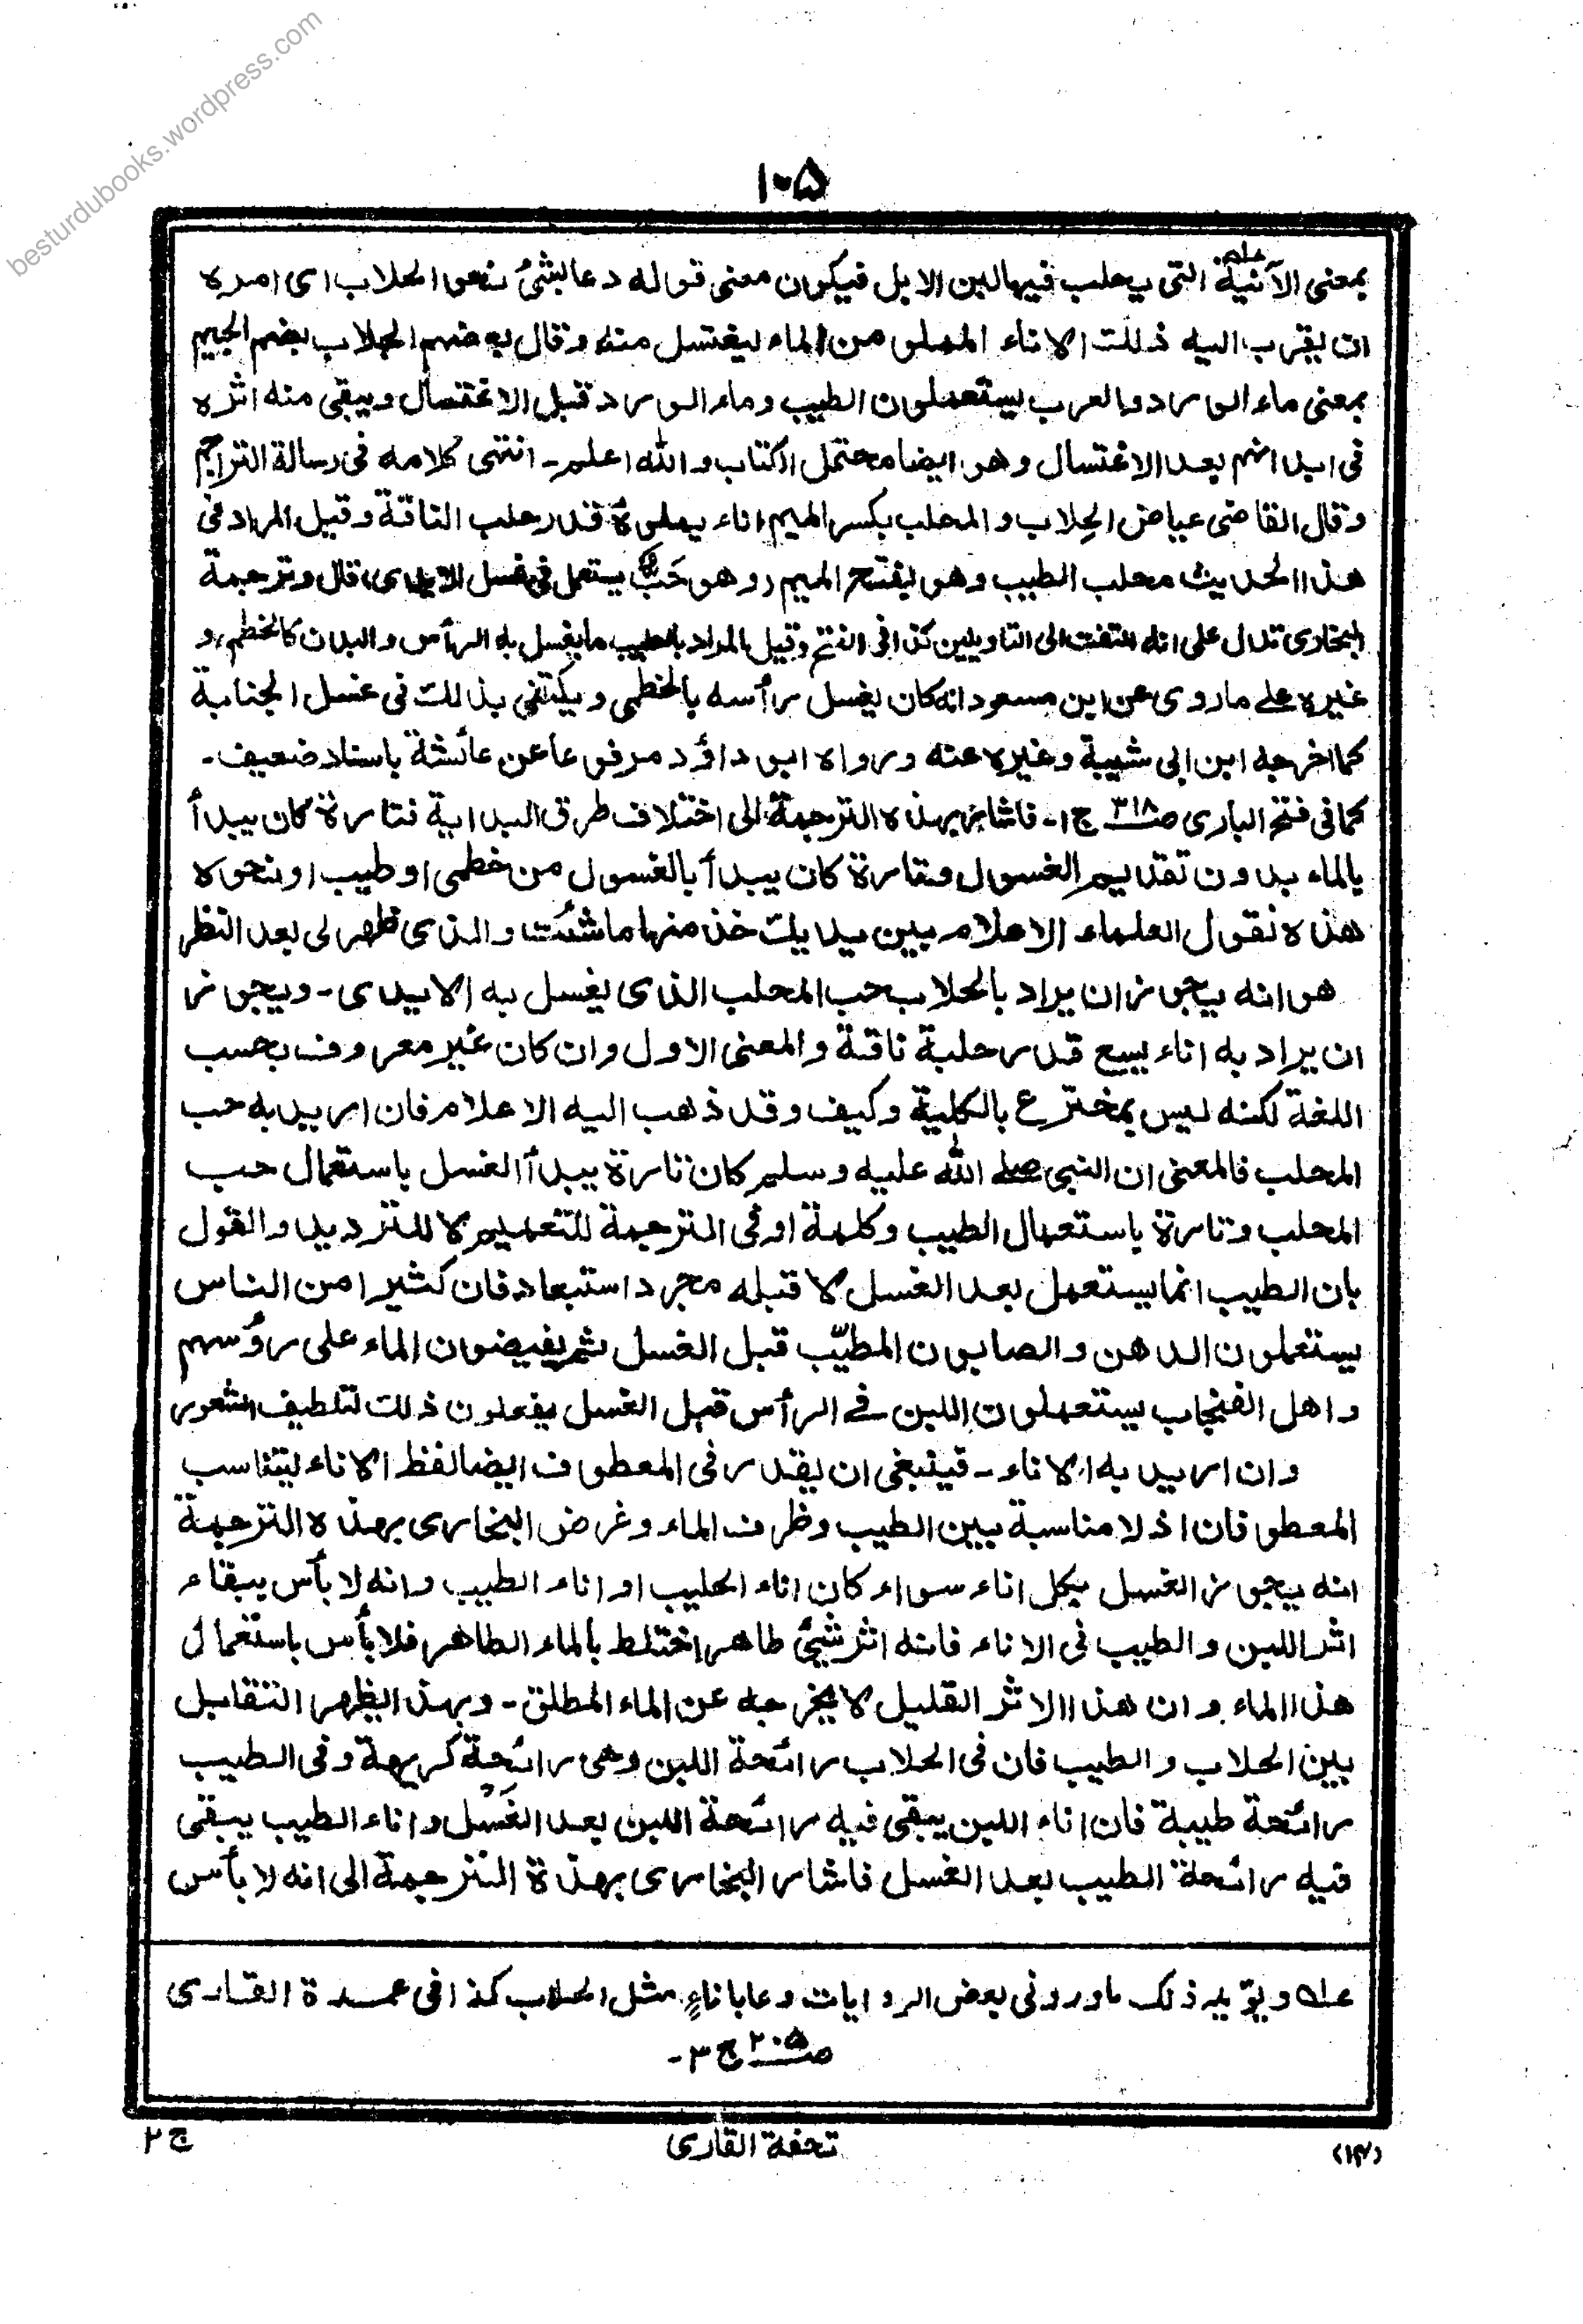 besturdubooks.wordpress.com
١٠٥
بمعنى الآنية التى يحلب فيها لبن الابل فيكون معنى قوله دعا بشئ نحو الحلاب اى امره
ان يقرب اليه ذلك الاناء المملو من الماء ليغتسل منه وقال بعضهم الجلاب بضم الجيم
بمعنى ماء الورد والعرب يستعملون الطيب وماء الورد قبل الاغتسال ويبقى منه اثره
فى ابدانهم بعد الاغتسال وهو ايضا محتمل الكتاب والله اعلم - انتهى كلامه فى رسالة التراجم
وقال القاضى عياض الحِلاب والمحلب بكسر الميم اناء يملوءه قدر حلب الناقة وقيل المراد فى
هذا الحديث محلب الطيب وهو بفتح الميم (وهو حَبٌّ يستعمل فى غسل الايدى) قال وترجمة
البخارى تدل على انه التفت الى التاويلين كذا فى الفتح وقيل المراد بالطيب ما يغسل به الرأس والبدن كالخطمى و
غيره على ماروى عن ابن مسعود انه كان يغسل رأسه بالخطمى ويكتفى بذالك فى غسل الجنابة
كما اخرجه ابن ابى شيبة وغيره عنه ورواه ابو داؤد مرفوعا عن عائشة باسناد ضعيف -
كما فى فتح البارى صـ٣١٨ ج١ - فاشار بهذه الترجمة الى اختلاف طرق البداية فتارة كان يبدأ
بالماء بدون تقديم الغسول وتارة كان يبدأ بالغسول من خطمى او طيب او نحوه
هذه نقول العلماء الاعلام بين يديك خذ منها ما شئت والذى ظهر لى بعد النظر
هو انه يجوز ان يراد بالحلاب حب المحلب الذى يغسل به الايدى - ويجوز
ان يراد به اناء يسع قدر حلبة ناقة والمعنى الاول وان كان غير معروف بحسب
اللغة لكنه ليس بمخترع بالكلية وكيف وقد ذهب اليه الاعلام فان اريد به حب
المحلب فالمعنى ان النبى صلے الله عليه وسلم كان تارة يبدأ الغسل باستعمال حب
المحلب وتارة باستعمال الطيب وكلمة او فى الترجمة للتعميم لا للترديد والقول
بان الطيب انما يستعمل بعد الغسل لا قبله مجرد استبعاد فان كثيرا من الناس
يستعملون الدهن والصابون المطيّب قبل الغسل ثم يفيضون الماء على رؤسهم
واهل الفنجاب يستعملون اللبن فے الرأس قبل الغسل يفعلون ذلك لتلطيف الشعور
وان اريد به الاناء - فينبغى ان يقدر فى المعطوف ايضا لفظ الاناء ليتناسب
المعطوفان اذ لا مناسبة بين الطيب وظرف الماء وغرض البخارى بهذه الترجمة
انه يجوز الغسل بكل اناء سواء كان اناء الحليب او اناء الطيب وانه لا بأس ببقاء
اثر اللبن والطيب فى الاناء فانه اثر شيئ طاهر اختلط بالماء الطاهر فلا بأس باستعمال
هذا الماء وان هذا الاثر القليل لا يخرجه عن الماء المطلق - وبهذا يظهر التقابل
بين الحلاب والطيب فان فى الحلاب رائحة اللبن وهى رائحة كريهة وفى الطيب
رائحة طيبة فان اناء اللبن يبقى فيه رائحة اللبن بعد الغَسْل واناء الطيب يبقى
فيه رائحة الطيب بعد الغسل فاشار البخارى بهذة الترجمة الى انه لا بأس
عله ويؤيد ذلك ماورد فى بعض الروايات دعا باناءٍ مثل الحلاب كذا فى عمدة القارى
صـ٢٠٥ ج ٣ -
(١٤) تحفة القارى ج ٢